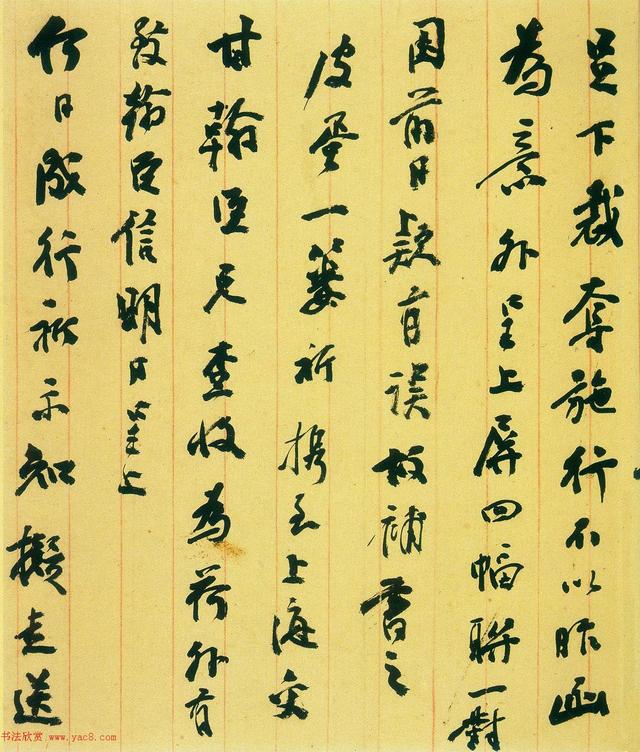 足下裁奪施行不以昨函
為意外呈上屏四幅聯一對
因前日上款有誤故補書之
皮蛋一簍祈攜至上海交
甘翰臣兄查收為荷外有
致翰臣信明日呈上
何日成行祈示知擬走送
书法欣赏 www.yac8.com